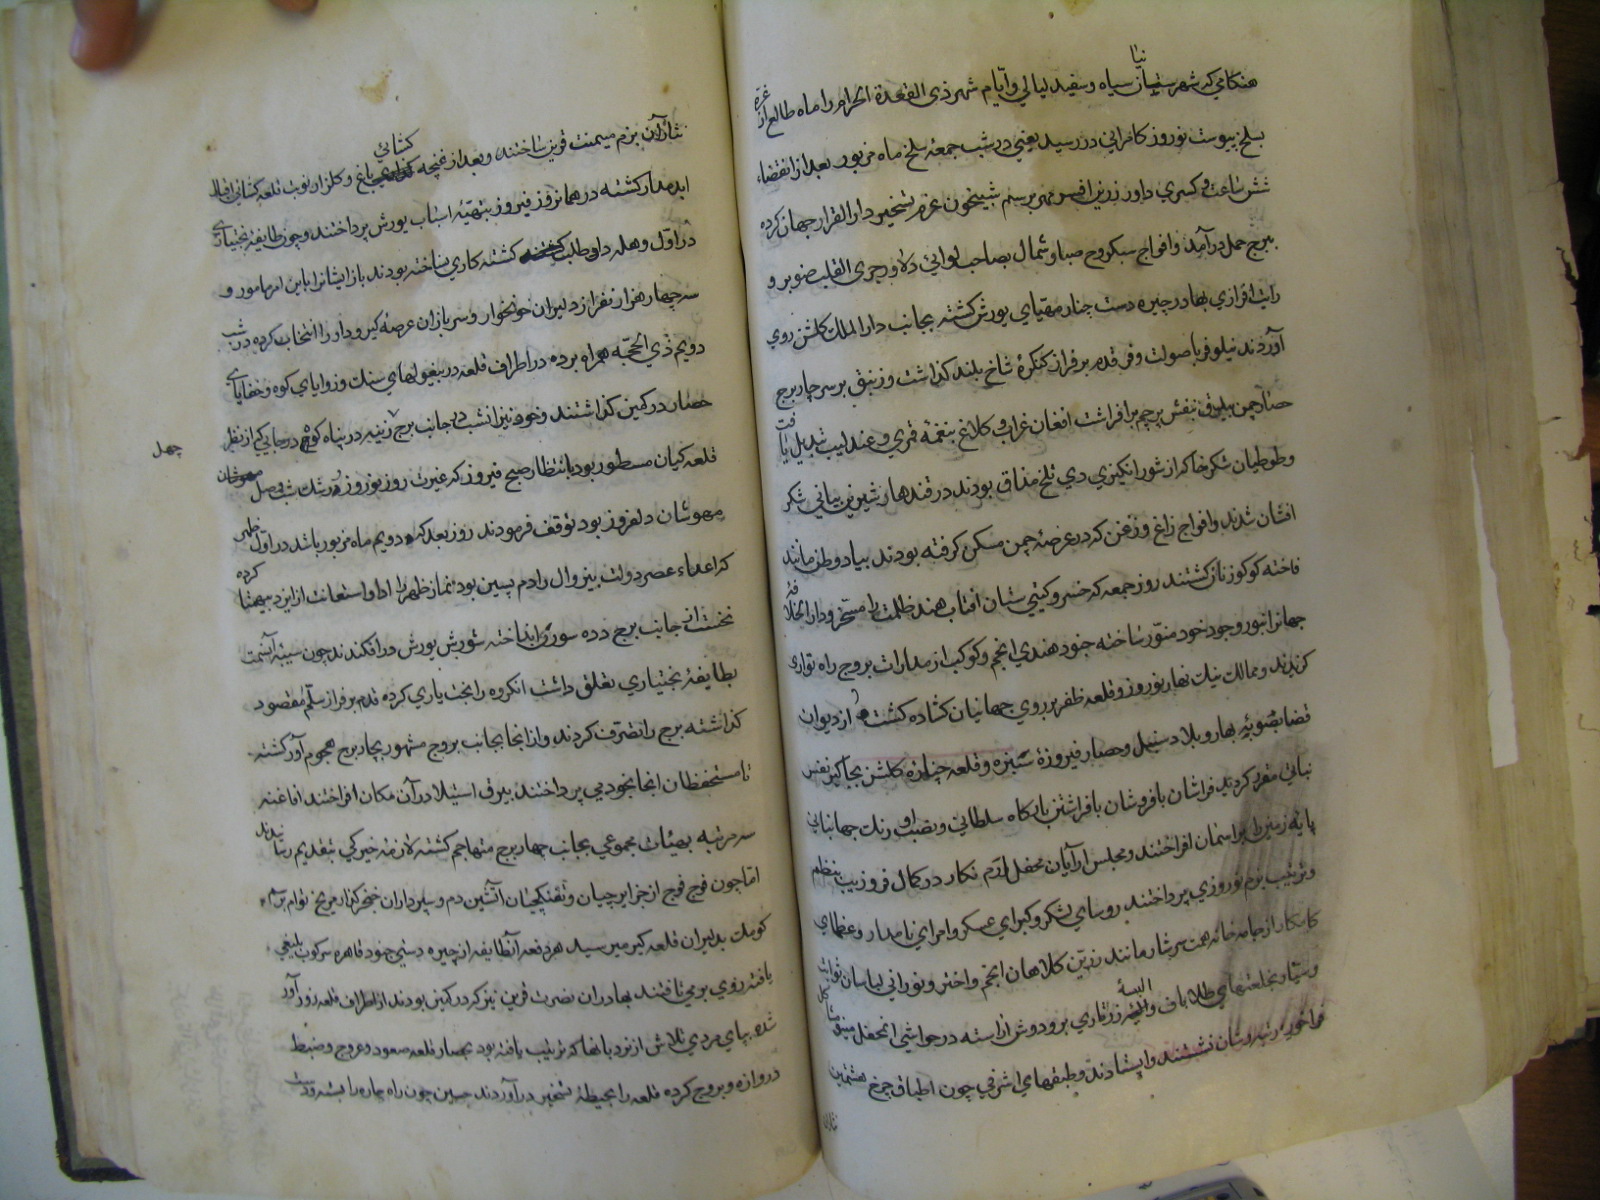 هنکامی که شهرستان سیاه و سفید لیالی و ایّام شهر ذی القعدة الحرام را ماه طالع از غرّه
نیا
بسلخ پیوست نوروز کامرانی در رسید یعنی در شب جمعه سلخ ماه مزبور بعد از انقضاء
شش ساعت و کسری داور زرین افسر مهر برسم شبیخون عزم تسخیر دار القرار جهان کرده
ببرج حمل درآمد و افواج سبکروح صبا و شمال بصاحب لوائی دلاور جری القلب صنوبر و
رایت افرازی بهادر چیره دست چنار مهیّای یورش کشته بجانب دار الملک کلشن روی
آوردند نیلوفر با صولت و فر قدم بر فراز کنکرهٔ شاخ بلند کذاشت و زنبق بر سر چار برج
حصار چمن بیلوق بنفش پرچم برافراشت افغان غراب و کلاغ بنغمه قمری و عندلیب تبدیل یافت
و طوطیان شکرخا که از شور انکیزی دی تلخ مذاق بودند در قندهار شیرین بیانی شکر
افشان شدند و افواج زاغ و زغن که در عرصهٔ چمن مسکن کرفته بودند بیاد وطن مانند
فاخته کوکو زنان کشتند روز جمعه که خسرو کیتی ستان افتاب هند ظلمت را مسخّر و دار الخلافه
جهانرا بنور وجود خود منوّر ساخته جنود هندی انجم و کوکب از مدارات بروج راه تواری
کزیدند و ممالک نهار نوروز و قلعه ظفر بر روی جهانیان کشاده کشت و از دیوان
قضا بصوبه بهار و بلاد سنبل و حصار فیروزهٔ سبزه و قلعه چناره کلشن بجاکیر نفس
نباتی مقرر کردید فراشان بافروشان بافراشتن بارکاه سلطانی و نصب اورنک جهانبانی
پایهٔ زمین را بر آسمان افراختند و مجلس ارایان محفل ارم نکار در کمال فر و زیب بتنظیم
و ترتیب بزم نوروزی پرداختند روسای لشکر و کبرای عسکر و امرای نامدار و عظمای
کامکار از جامه خانه همت سرشار مانند زرّین کلاهان انجم و اختر و نورانی لباسان ثوابت
و سیّار بخلعتهای طلا باف و البسهٔ زرتاری بر و دوش آراسته در حواشی انمحفل مینو مشاکل
فراخور رتبه و شان نشستند و ایستادند و طبقهای اشرفی چون اطباق چرخ هشتمین
نثار
نثار آن بزم میمنت قرین ساختند و بعد از غنچه کشائی باغ و کلزار نوبت قلعه کشائی اقبال
ابد مدار کشته در همانروز فیروز بتهیّهٔ اسباب یورش پرداختند و چون طایفهٔ بختیاری
در اوّل وهله داوطلب کشته کاری نساخته بودند باز ایشانرا باین امر مامور و
سه چهار هزار نفر از دلیران خونخوار و سربازان عرصهٔ کیر و دار را انتخاب کرده در شب
دویم ذی الحجّه همراه برده در اطراف قلعه در بیغولهای سنک و زوایای کوه و خفایای
حصار در کمین کذاشتند و خود نیز انشب در جانب برج زینه در پناه کوه در جایی که از نظر
چهل
قلعه کیان مستور بود بانتظار صبح فیروز که غیرت روز نوروز و رشک شب وصل
مهوشان دلفروز بود توقف فرمودند روز بعد که دویم ماه مزبور باشد در اوّل ظهر
که اعداء عصر دولت بیزوال را دم پسین بود نماز ظهر را ادا و استعانت از ایزد بیهمتا کرده
نخست از جانب برج دده سورن انداخته شورش یورش در افکندند چون سیبه آنسمت
بطایفهٔ بختیاری تعلق داشت انکروه را بخت یاری کرده قدم بر فراز سلّم مقصود
کذاشته برج را تصرف کردند و از انجا بجانب بروج مشهور بچار برج هجوم آور کشته
تا مستحفظان انجا بخود می پرداختند بیرق استیلا در آن مکان افراختند افاغنه
سه مرتبه بهیئات مجموعی بجانب چهار برج متهاجم کشته لازمه خیرکی بتقدیم رسانیدند
امّا چون فوج فوج از جزایرچیان و تفنکچیان آتشین دم و سپرداران خنجر کذار مریخ توام
کومک بدلیران قلعه کیر میرسید هر دفعه آنطایفه از چیره دستی جنود قاهره سرکوب بلیغی
یافته روی بر می تافتند بهادران نصرت قرین نیز که در کمین بودند از اطراف قلعه زور آور
شده بپای مردی تلاش از نردبانها که ترتیب یافته بود بحصار قلعه صعود و عروج و ضبط
دروازه و بروج کرده قلعه را بحیطهٔ تسخیر درآوردند حسین چون راه چاره را بسته دید